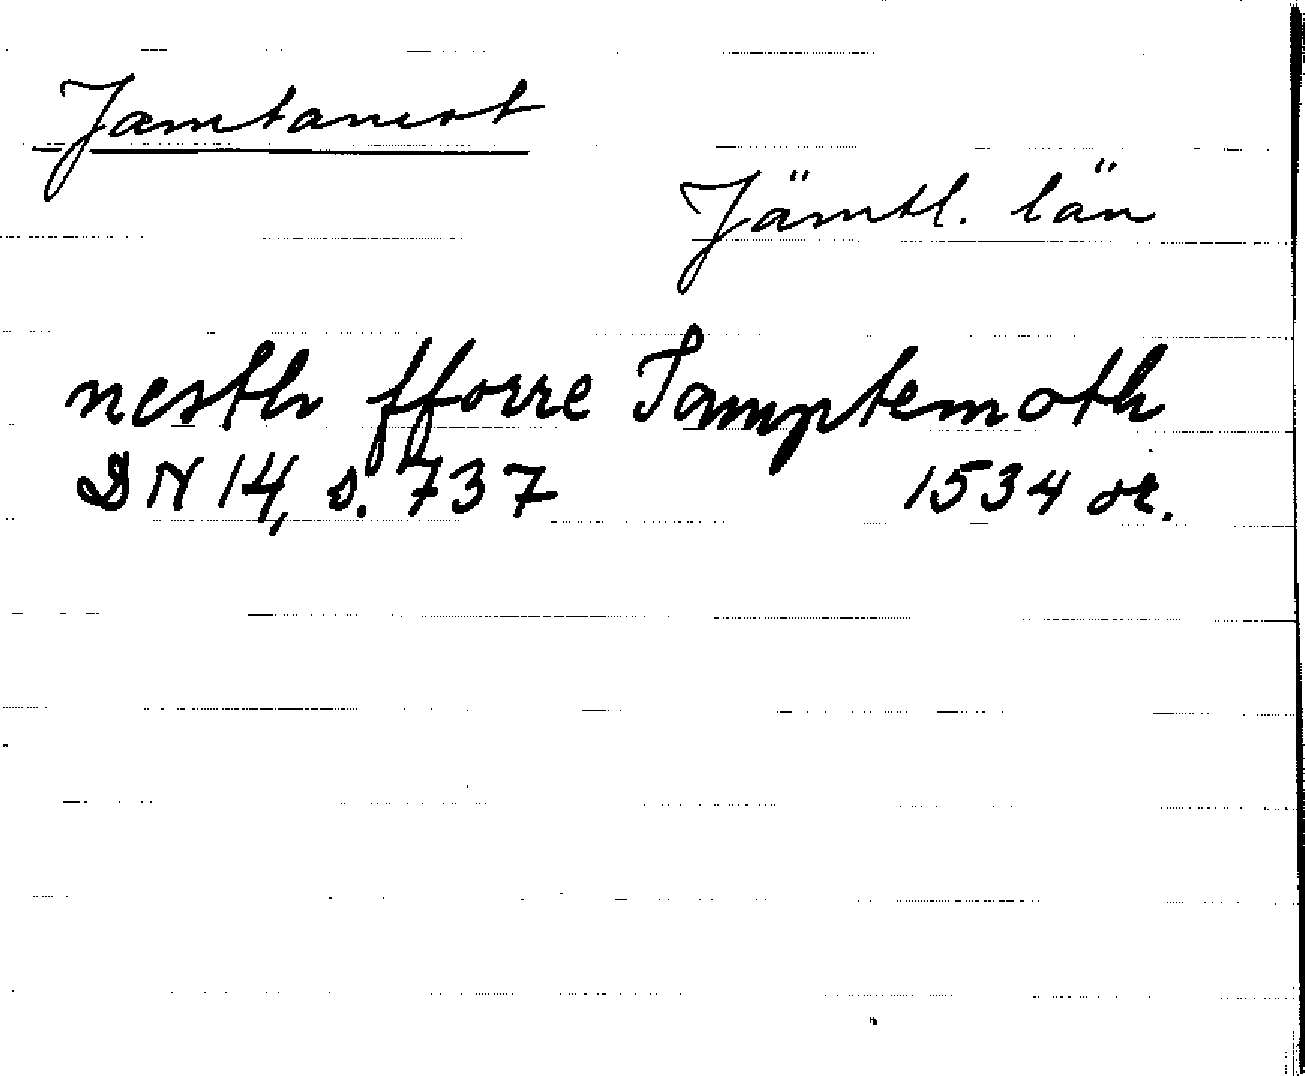 Jamtamot
Jämtl. län
nesth fforre Jamptemoth
DN 14, s. 737 1534 or.